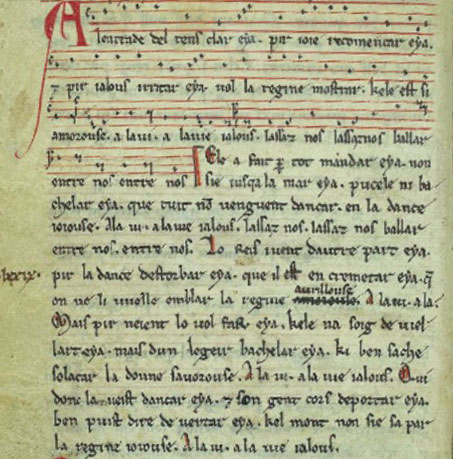 A lentrade del tens clar eya. pir ioie recomencar eya.
⁊ pir ialous irritar eya. uol la regine mostrar. kele est si
amorouse. a la ui. a la uie ialous. lassaz nos lassaz nos ballar
entre nos entre nos Ele a fait p̱ tot mandar eya. non
sie iusqa la mar eya. pucele ni ba
chelar eya. que tuit nō uenguent dancar. en la dance
ioiouse. Ala ui. ala uie ialous. lassaz nos. lassaz nos ballar
entre nos. entre nos. Lo reis iuent dautre part eya.
lxxix. pir la dance destorbar eya. que il est en cremetar eya. q̄
on ne li uuelle emblar la regine amorouse. aurillouse A la ui. a la.
Mais pir neient lo uol far eya. kele na soig de uiel
lart eya. mais dun legeir bachelar eya. ki ben sache
solacar la donne sauorouse. A la ui. a la uie ialous. Qui
donc la ueist dancar eya. ⁊ son gent cors deportar eya.
ben puist dire de uertar eya. kel mont non sie sa par
la regine ioiouse. A la ui. a la uie ialous.